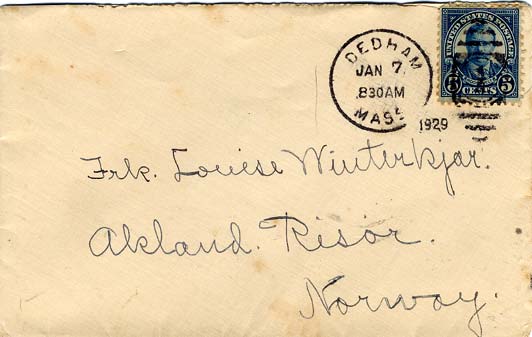 UNITED STATES POSTAGE
5 CENTS 5
DEDHAM
JAN 7
830AM
MASS
1929
Frk. Louise Winterkjær.
Akland. Risör.
Norway.